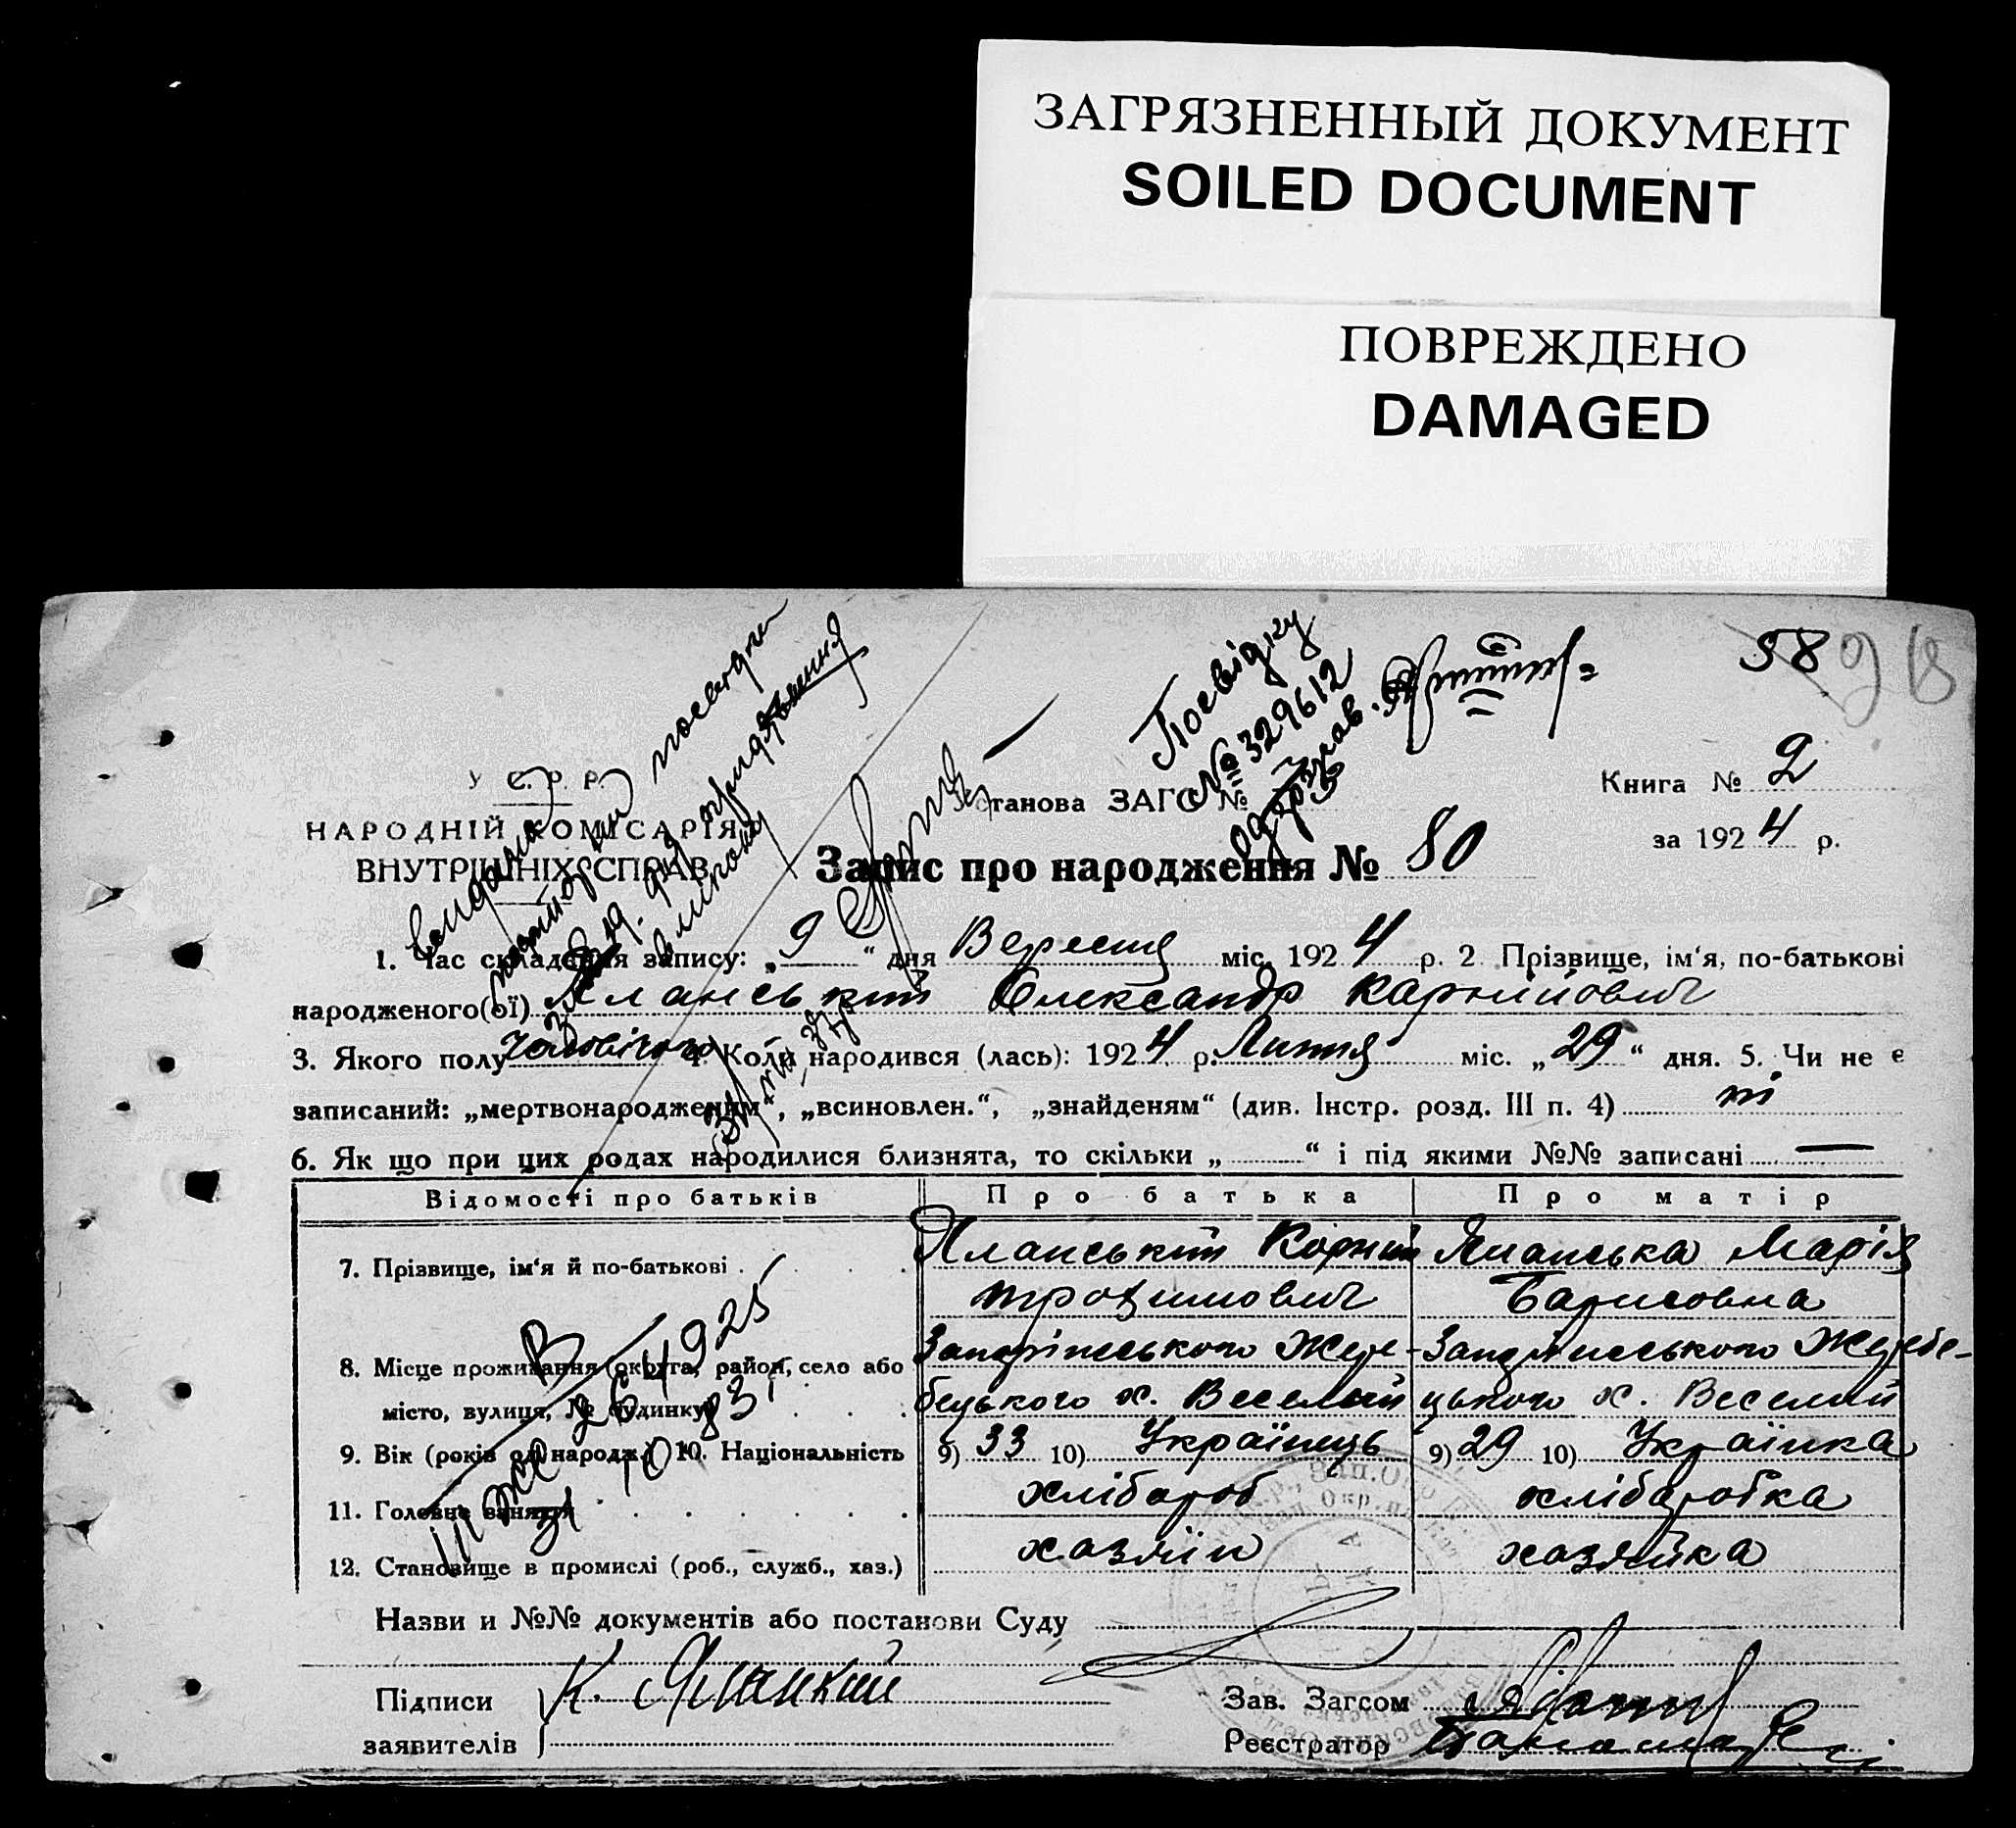 ЗАГРЯЗНЕННЫЙ ДОКУМЕНТ
SOILED DOCUMENT
ПОВРЕЖДЕНО
DAMAGED
58
Посвідку
№ 329612
У С. Р. Р.
НАРОДНІЙ КОМІСАРІЯ
ВНУТРІШНІХ СПРАВ
Установа ЗАГС №
Книга № 2
за 1924 р.
Запис про народження № 80
1. Час складання запису: „ 9 “ дня Вересня міс. 1924 р. 2 Прізвище, ім‘я, по-батькові
народженого(ої) Яланський Олександр Карнійович
3. Якого полу чоловічого 4. Коли народився (лась): 1924 р. Липня міс. „ 29 “ дня. 5. Чи не є
записаний: „мертвонародженим“, „всиновлен.“, „знайденям“ (див. Інстр. розд. III п. 4) ні
6. Як що при цих родах народилися близнята, то скільки „ “ і під якими №№ записані —
Відомості про батьків Про батька Про матір
7. Прізвище, ім‘я й по-батькові Яланський Корній Яланська Марія
Трохимович Барисовна
8. Місце проживання (округа, район, село або Запоріжського Жере- Запоріжського Жеребе-
місто, вулиця, № будинку) бецького х. Веселий цького х. Веселий
9. Вік (років од народж.) 10. Національність 9) 33 10) Українець 9) 29 10) Українка
11. Головне заняття хлібороб хліборобка
12. Становище в промислі (роб., служб., хаз.) хазяїн хазяйка
Назви и №№ документів або постанови Суду
Підписи К. Яланский
заявителів
Зав. Загсом
Реєстратор